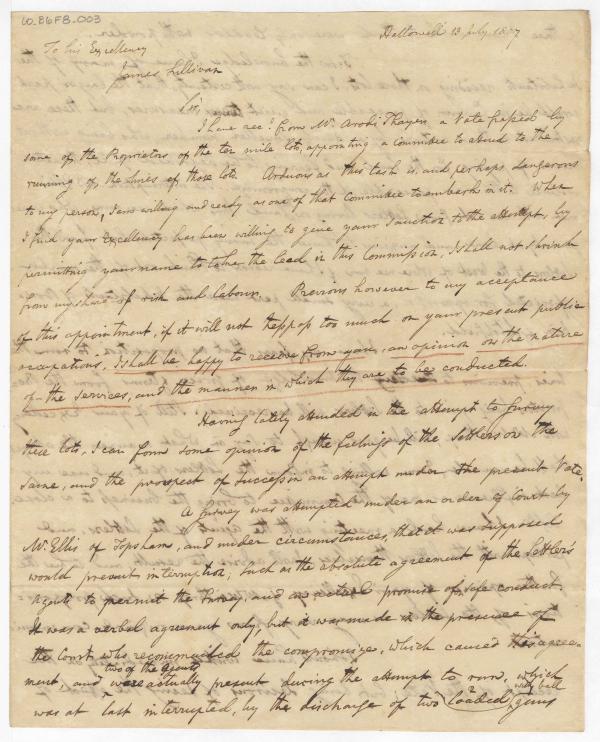 60.86F8.003
Hallowell 13 July 1807
To his Excellency
James Sullivan
Sir,
I have recd. from Mr. Arodi Thayer, a Vote passed by
some of the Proprietors of the ten mile lots, appointing a Committee to attend to the
running of the lines of those lots. Arduous as this task is, and perhaps dangerous
to my person, I am willing and ready as one of that Committee to embark in it. When
I find your Excellency has been willing to give your Sanction to the attempt, by
permitting your name to take the lead in this Commission, I shall not shrink
from my share of risk and labour. Previous however to my acceptance
of this appointment, if it will not trespass too much on your present public
occupations, I shall be happy to receive from you, an opinion on the nature
of the services, and the manner in which they are to be conducted.
Having lately attended in the attempt to survey
these lots, I can form some opinion of the feelings of the Settlers on the
same, and the prospect of success in an attempt under the present Vote.
A survey was attempted under an order of Court by
Mr. Ellis of Topsham, and under circumstances, that it was supposed
would prevent interruption; Such as the absolute agreement of the Settler's
Agents to permit the Survey, and an actual promise of safe conduct.
It was a verbal agreement only, but it was made in the presence of
the Court who recommended the compromise, which caused this agree-
ment, and two of the Agents were actually present during the attempt to run, which
was at last interrupted, by the discharge of two loaded with ball guns